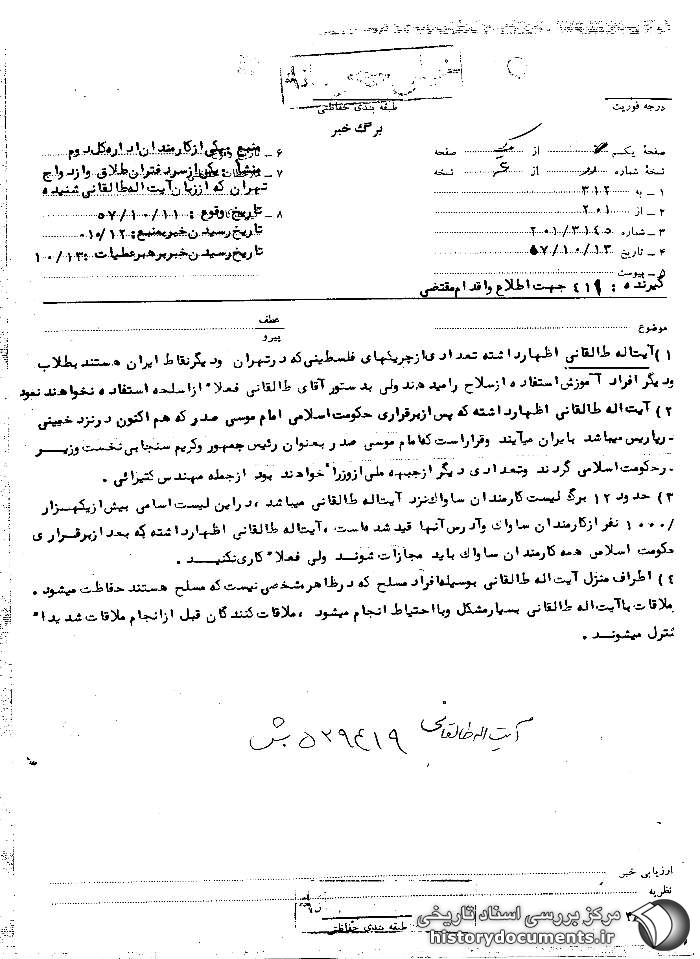 خیلی محرمانه
طبقه بندی حفاظتی
درجه فوریت
برگ خبر
صفحهٔ یکم از یک صفحه
نسخهٔ شماره از نسخه
۱ ـ به ۳۱۲
۲ ـ از ۲۰۱
۳ ـ شماره ۲۰۱/۳۱۴۵
۴ ـ تاریخ ۵۷/۱۰/۱۳
۵ ـ پیوست
گیرنده : ۴۱۹ جهت اطلاع واقدام مقتضی
۶ ـ منبع : یکی از کارمندان اداره کل دوم
۷ ـ منشأ : یکی از سردفتران طلاق وازدواج
تهران که اززبان آیت اله طالقانی شنیده
۸ ـ تاریخ وقوع : ۵۷/۱۰/۱۱
تاریخ رسیدن خبر به منبع : ۱۰/۱۲
تاریخ رسیدن خبر برهبر عملیات : ۱۰/۱۳
موضوع
عطف
پیرو
۱) آیت اله طالقانی اظهارداشته تعدادی از چریکهای فلسطینی که در تهران ودیگر نقاط ایران هستند بطلاب
ودیگر افراد آموزش استفاده از سلاح را میدهند ولی بدستور آقای طالقانی فعلا" از اسلحه استفاده نخواهند نمود
۲) آیت اله طالقانی اظهارداشته که پس از برقراری حکومت اسلامی امام موسی صدر که هم اکنون درنزد خمینی
ـ درپاریس میباشد بایران میآیند وقراراست که امام موسی صدر بعنوان رئیس جمهور وکریم سنجابی نخست وزیر
ـ درحکومت اسلامی گردند وتعدادی دیگر از جبهه ملی از وزرا" خواهند بود ازجمله مهندس کتیرائی .
۳) حدود ۱۲ برگ لیست کارمندان ساواک نزد آیت اله طالقانی میباشد ، دراین لیست اسامی بیش ازیکهزار
/۱۰۰۰ نفر از کارمندان ساواک وآدرس آنها قید شده است ، آیت اله طالقانی اظهارداشته که بعد از برقراری
حکومت اسلامی همه کارمندان ساواک باید مجازات شوند ولی فعلا" کاری نکنید .
۴) اطراف منزل آیت اله طالقانی بوسیله افراد مسلح که درظاهر مشخص نیست که مسلح هستند حفاظت میشود .
ملاقات باآیت اله طالقانی بسیار مشکل وبااحتیاط انجام میشود ، ملاقات کنندگان قبل از انجام ملاقات شدیدا"
کنترل میشوند .
آیت اله طالقانی ۵۲۹۴۱۹ ش
ارزیابی خبر
نظریه
طبقه بندی حفاظتی
مرکز بررسی اسناد تاریخی
historydocuments.ir